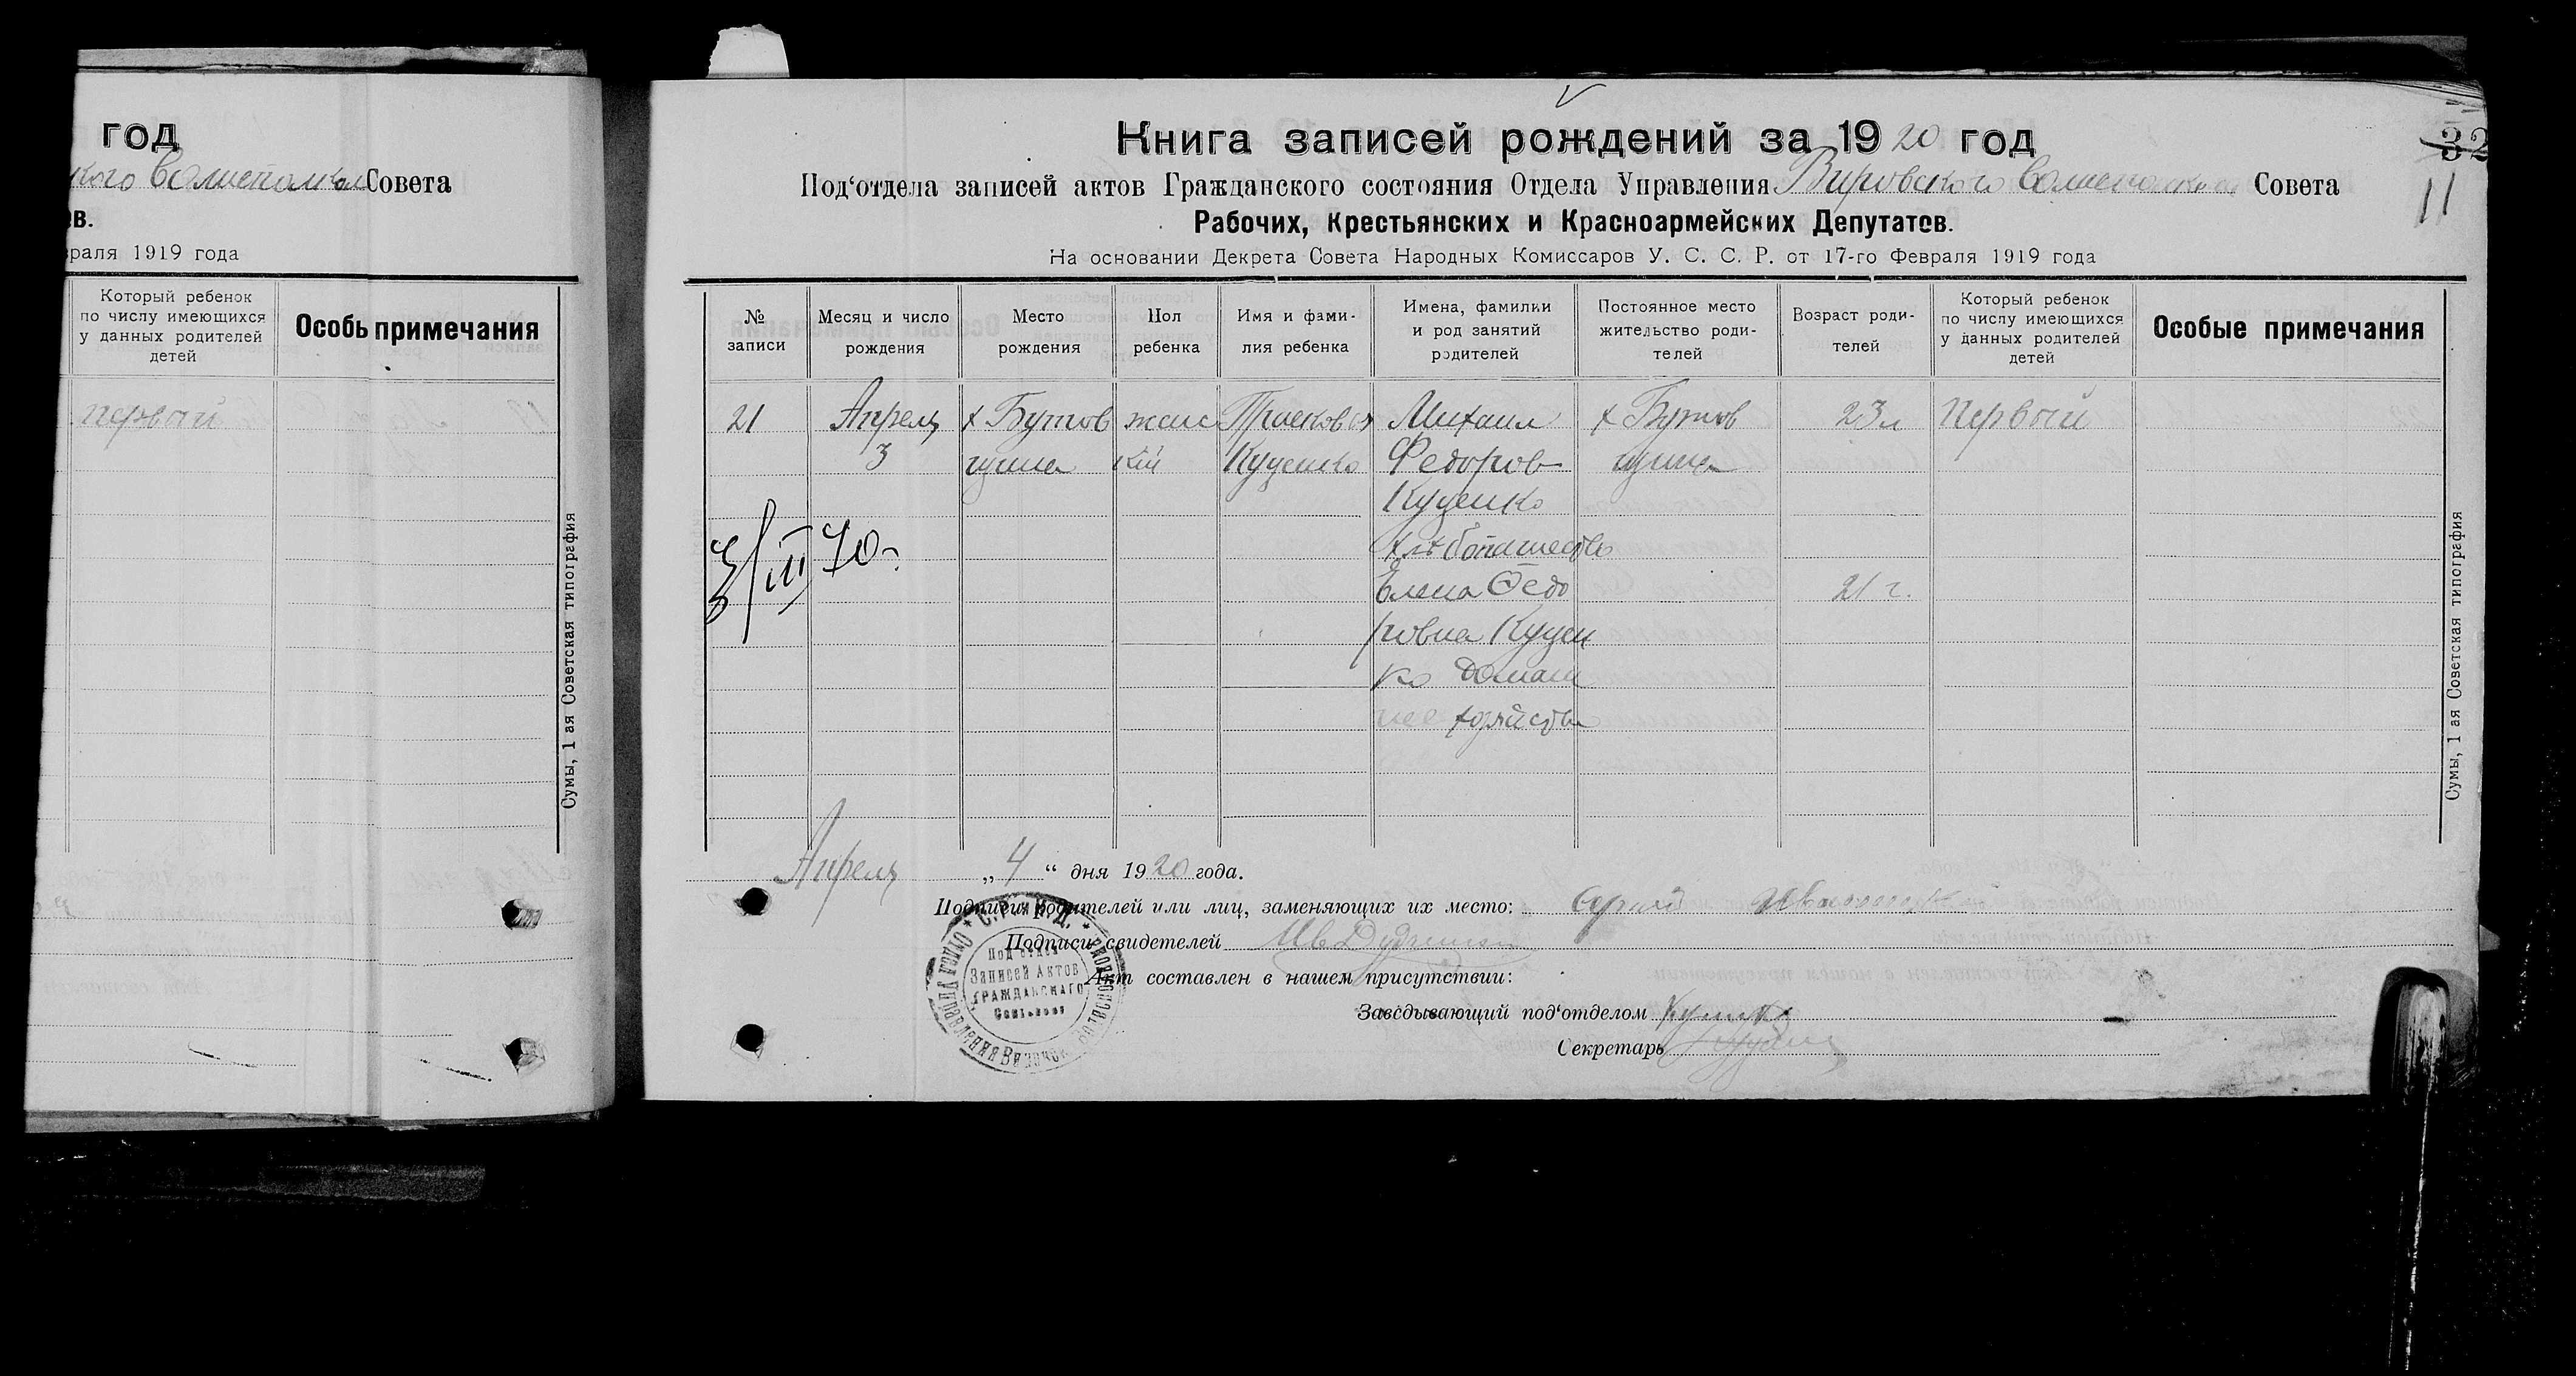 год
кого Волисполкома Совета
ов.
враля 1919 года
Который ребенок
по числу имеющихся
у данных родителей
детей
Особь примечания
первый
Сумы, 1 ая Советская типография
Книга записей рождений за 1920 год
32
Под'отдела записей актов Гражданского состояния Отдела Управления Вировского Волисполкома Совета
11
Рабочих, Крестьянских и Красноармейских Депутатов.
На основании Декрета Совета Народных Комиссаров У. С. С. Р. от 17-го Февраля 1919 года
№
записи
Месяц и число
рождения
Место
рождения
Пол
ребенка
Имя и фами-
лия ребенка
Имена, фамилии
и род занятий
родителей
Постоянное место
жительство роди-
телей
Возраст роди-
телей
Который ребенок
по числу имеющихся
у данных родителей
детей
Особые примечания
21 Апрель х Бутов женс Прасковья Михаил х Бутов 23 л Первый
3 щина кий Куценко Федоров щина
Куценко
хлебопашество
Елена Федо 21 г.
ровна Куцен
ко домаш
нее хозяйство
3/III 70
Сумы, 1 ая Советская типография
Апрель „4“ дня 1920 года.
Подписи родителей или лиц, заменяющих их место:
Подписи свидетелей
Акт составлен в нашем присутствии:
Заведывающий под'отделом
Секретарь
Под'отдел
Записей Актов
Гражданскаго
Состояния